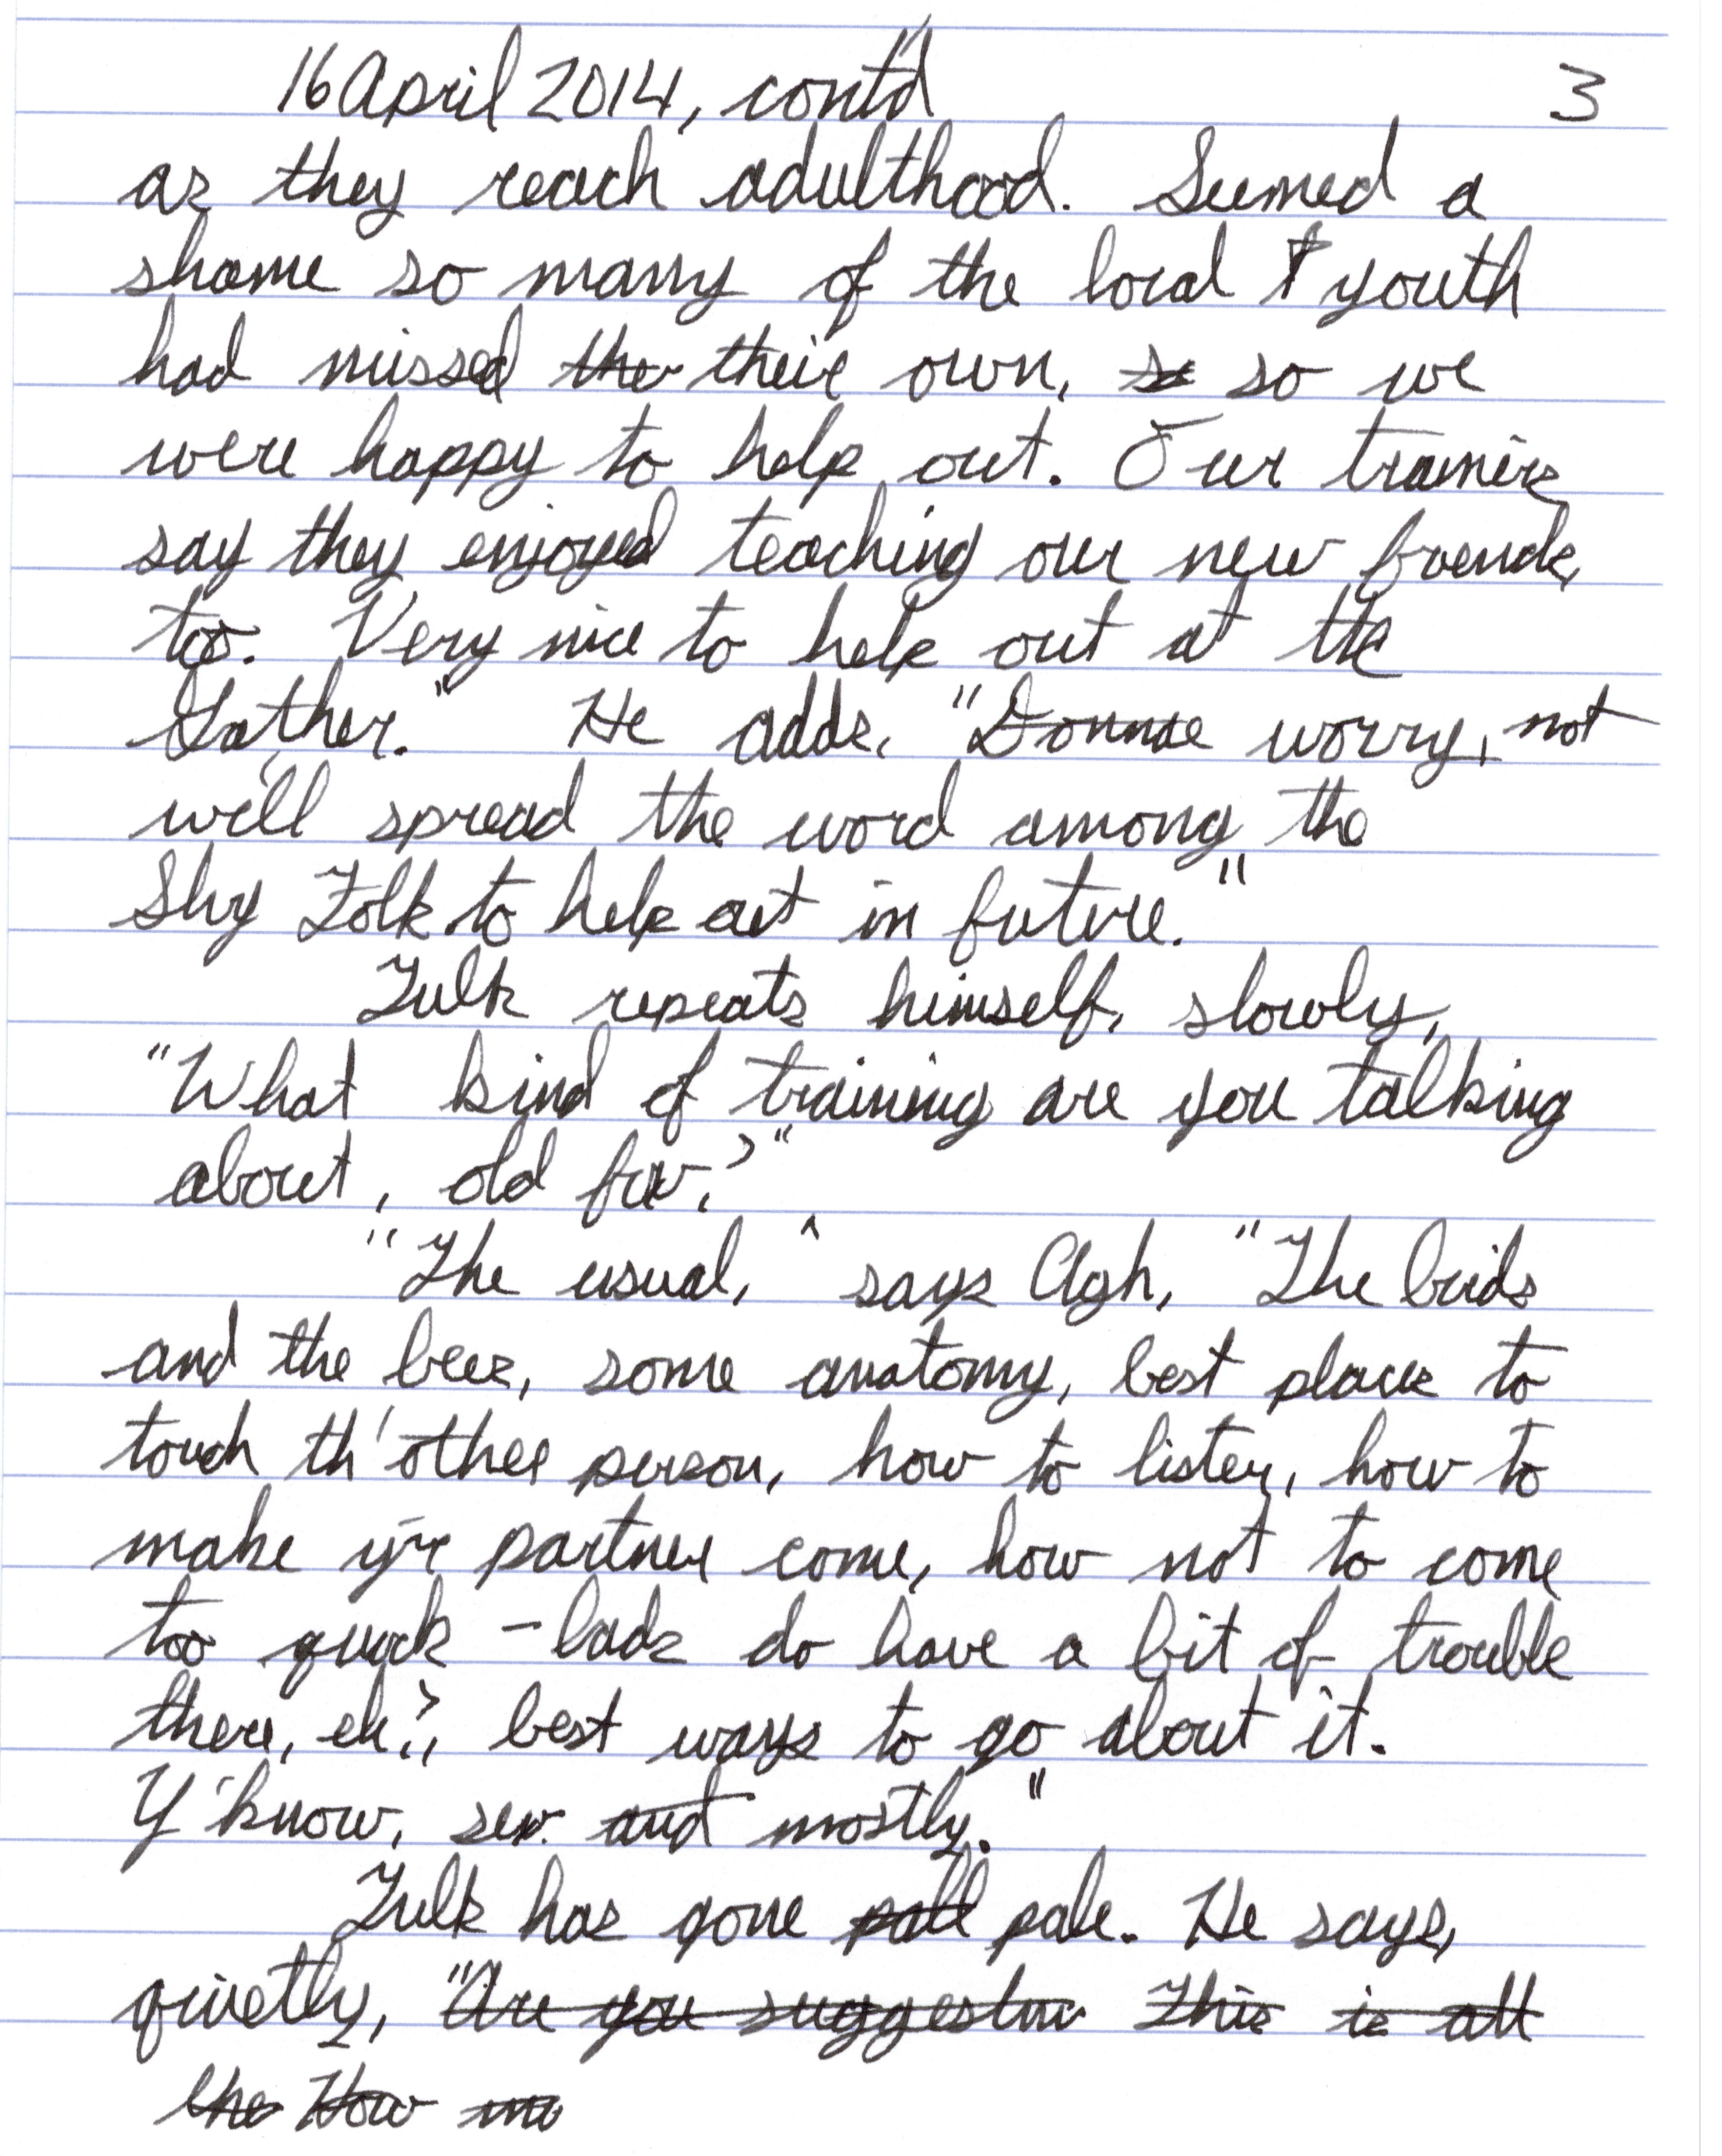 16 April 2014, cont'd 3
as they reach adulthood. Seemed a
shame so many of the local t youth
had missed the their own, so so we
were happy to help out. Our trainers
say they enjoyed teaching our new friends,
too. Very nice to help out at the
Gather." He adds, "Donnae worry, not
we'll spread the word among the
Shy Folk to help out in future."
Fulk repeats himself, slowly,
"What kind of training are you talking
about, old fox?"
"The usual," says Agh, "The birds
and the bees, some anatomy, best places to
touch th'other person, how to listen, how to
make yr partner come, how not to come
too quick – lads do have a bit of trouble
there, eh?, best ways to go about it.
Y'know, sex and mostly."
Fulk has gone pall pale. He says,
quietly, "Are you suggestin This is all
the How mo